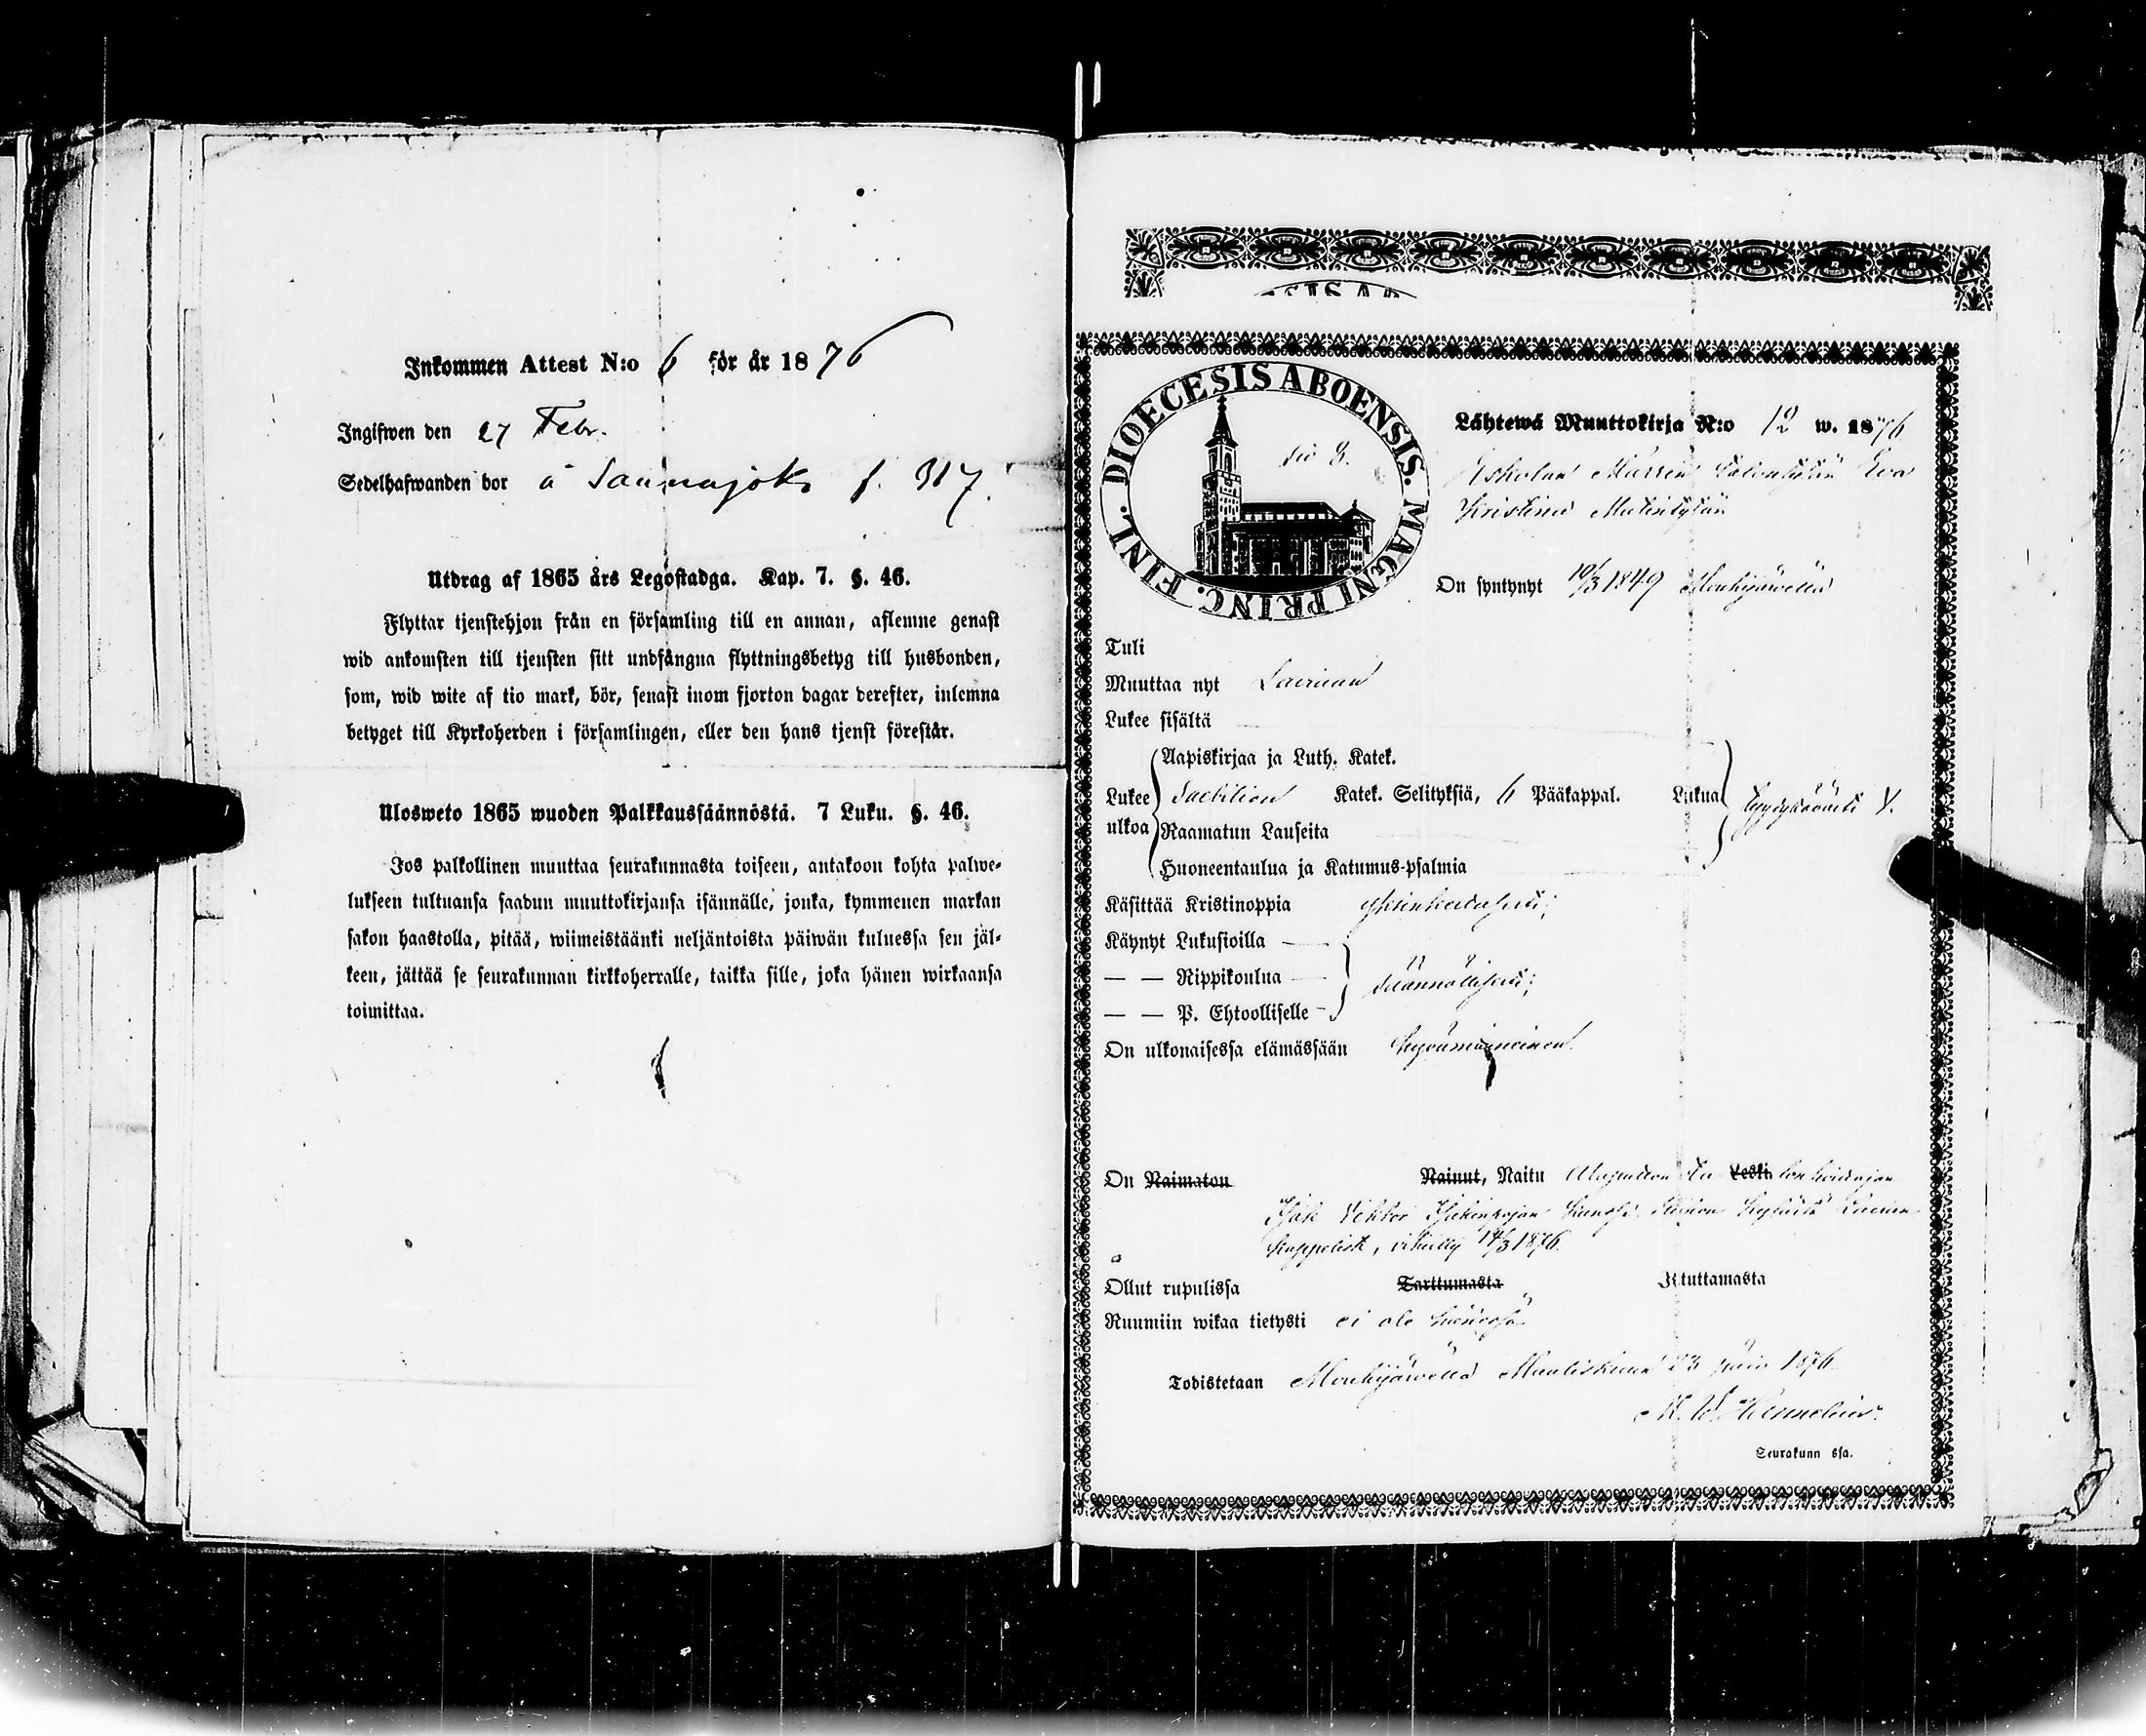 Inkommen Attest N:o 6 för år 1876
Ingifwen den 27 Febr.
Sedelhafwanden bor å Saunajoki f. 317.
Utdrag af 1865 års Legostadga. Kap. 7. §. 46.
Flyttar tjenstehjon från en församling till en annan, aflemne genast
wid ankomsten till tjensten sitt undfångna flyttningsbetyg till husbonden,
som, wid wite af tio mark, bör, senast inom fjorton dagar derefter, inlemna
betyget till Kyrkoherden i församlingen, eller den hans tjenst förestår.
Ulosweto 1865 wuoden Palkkaussäännöstä. 7 Luku. §. 46.
Jos palkollinen muuttaa seurakunnasta toiseen, antakoon kohta palwe-
lukseen tultuansa saadun muuttokirjansa isännälle, jonka, kymmenen markan
sakon haastolla, pitää, wiimeistäänki neljäntoista päiwän kuluessa sen jäl-
keen, jättää se seurakunnan kirkkoherralle, taikka sille, joka hänen wirkaansa
toimittaa.
SIS AB
DIOECESIS ABOENSIS. MAGNI PRINC. FINL.
Lähtewä Muuttokirja N:o 12 w. 1876
Eskolan Eva
Kristina Matintytär
On syntynyt 10/3 1849 Mouhijärvellä
Tuli
Muuttaa nyt Laviaan
Lukee sisältä
Aapiskirjaa ja Luth. Katek.
Lukee Katek. Selityksiä, 6 Pääkappal. Lukua
ulkoa Raamatun Lauseita
Huoneentaulua ja Katumus-psalmia
Käsittää Kristinoppia yksinkertaisesti;
Käynyt Lukusioilla
— — Rippikoulua säännöllisesti;
— — P. Ehtoolliselle
On ulkonaisessa elämässään hyvämaineinen
On Naimaton Nainut, Naitu Leski
Isak Viktor Isakinpojan Lavian
kappelista, vihitty 14/3 1876.
Ollut rupulissa Tarttumasta Istuttamasta
Ruumiin wikaa tietysti ei ole hänessä
Todistetaan Mouhijärvellä Maaliskuun 23 päiv 1876
Seurakunn ssa.